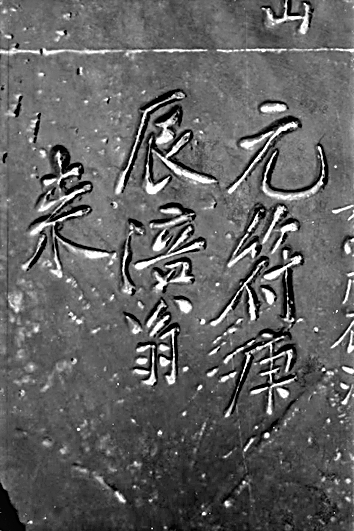 元符庚
辰涪翁
来
山